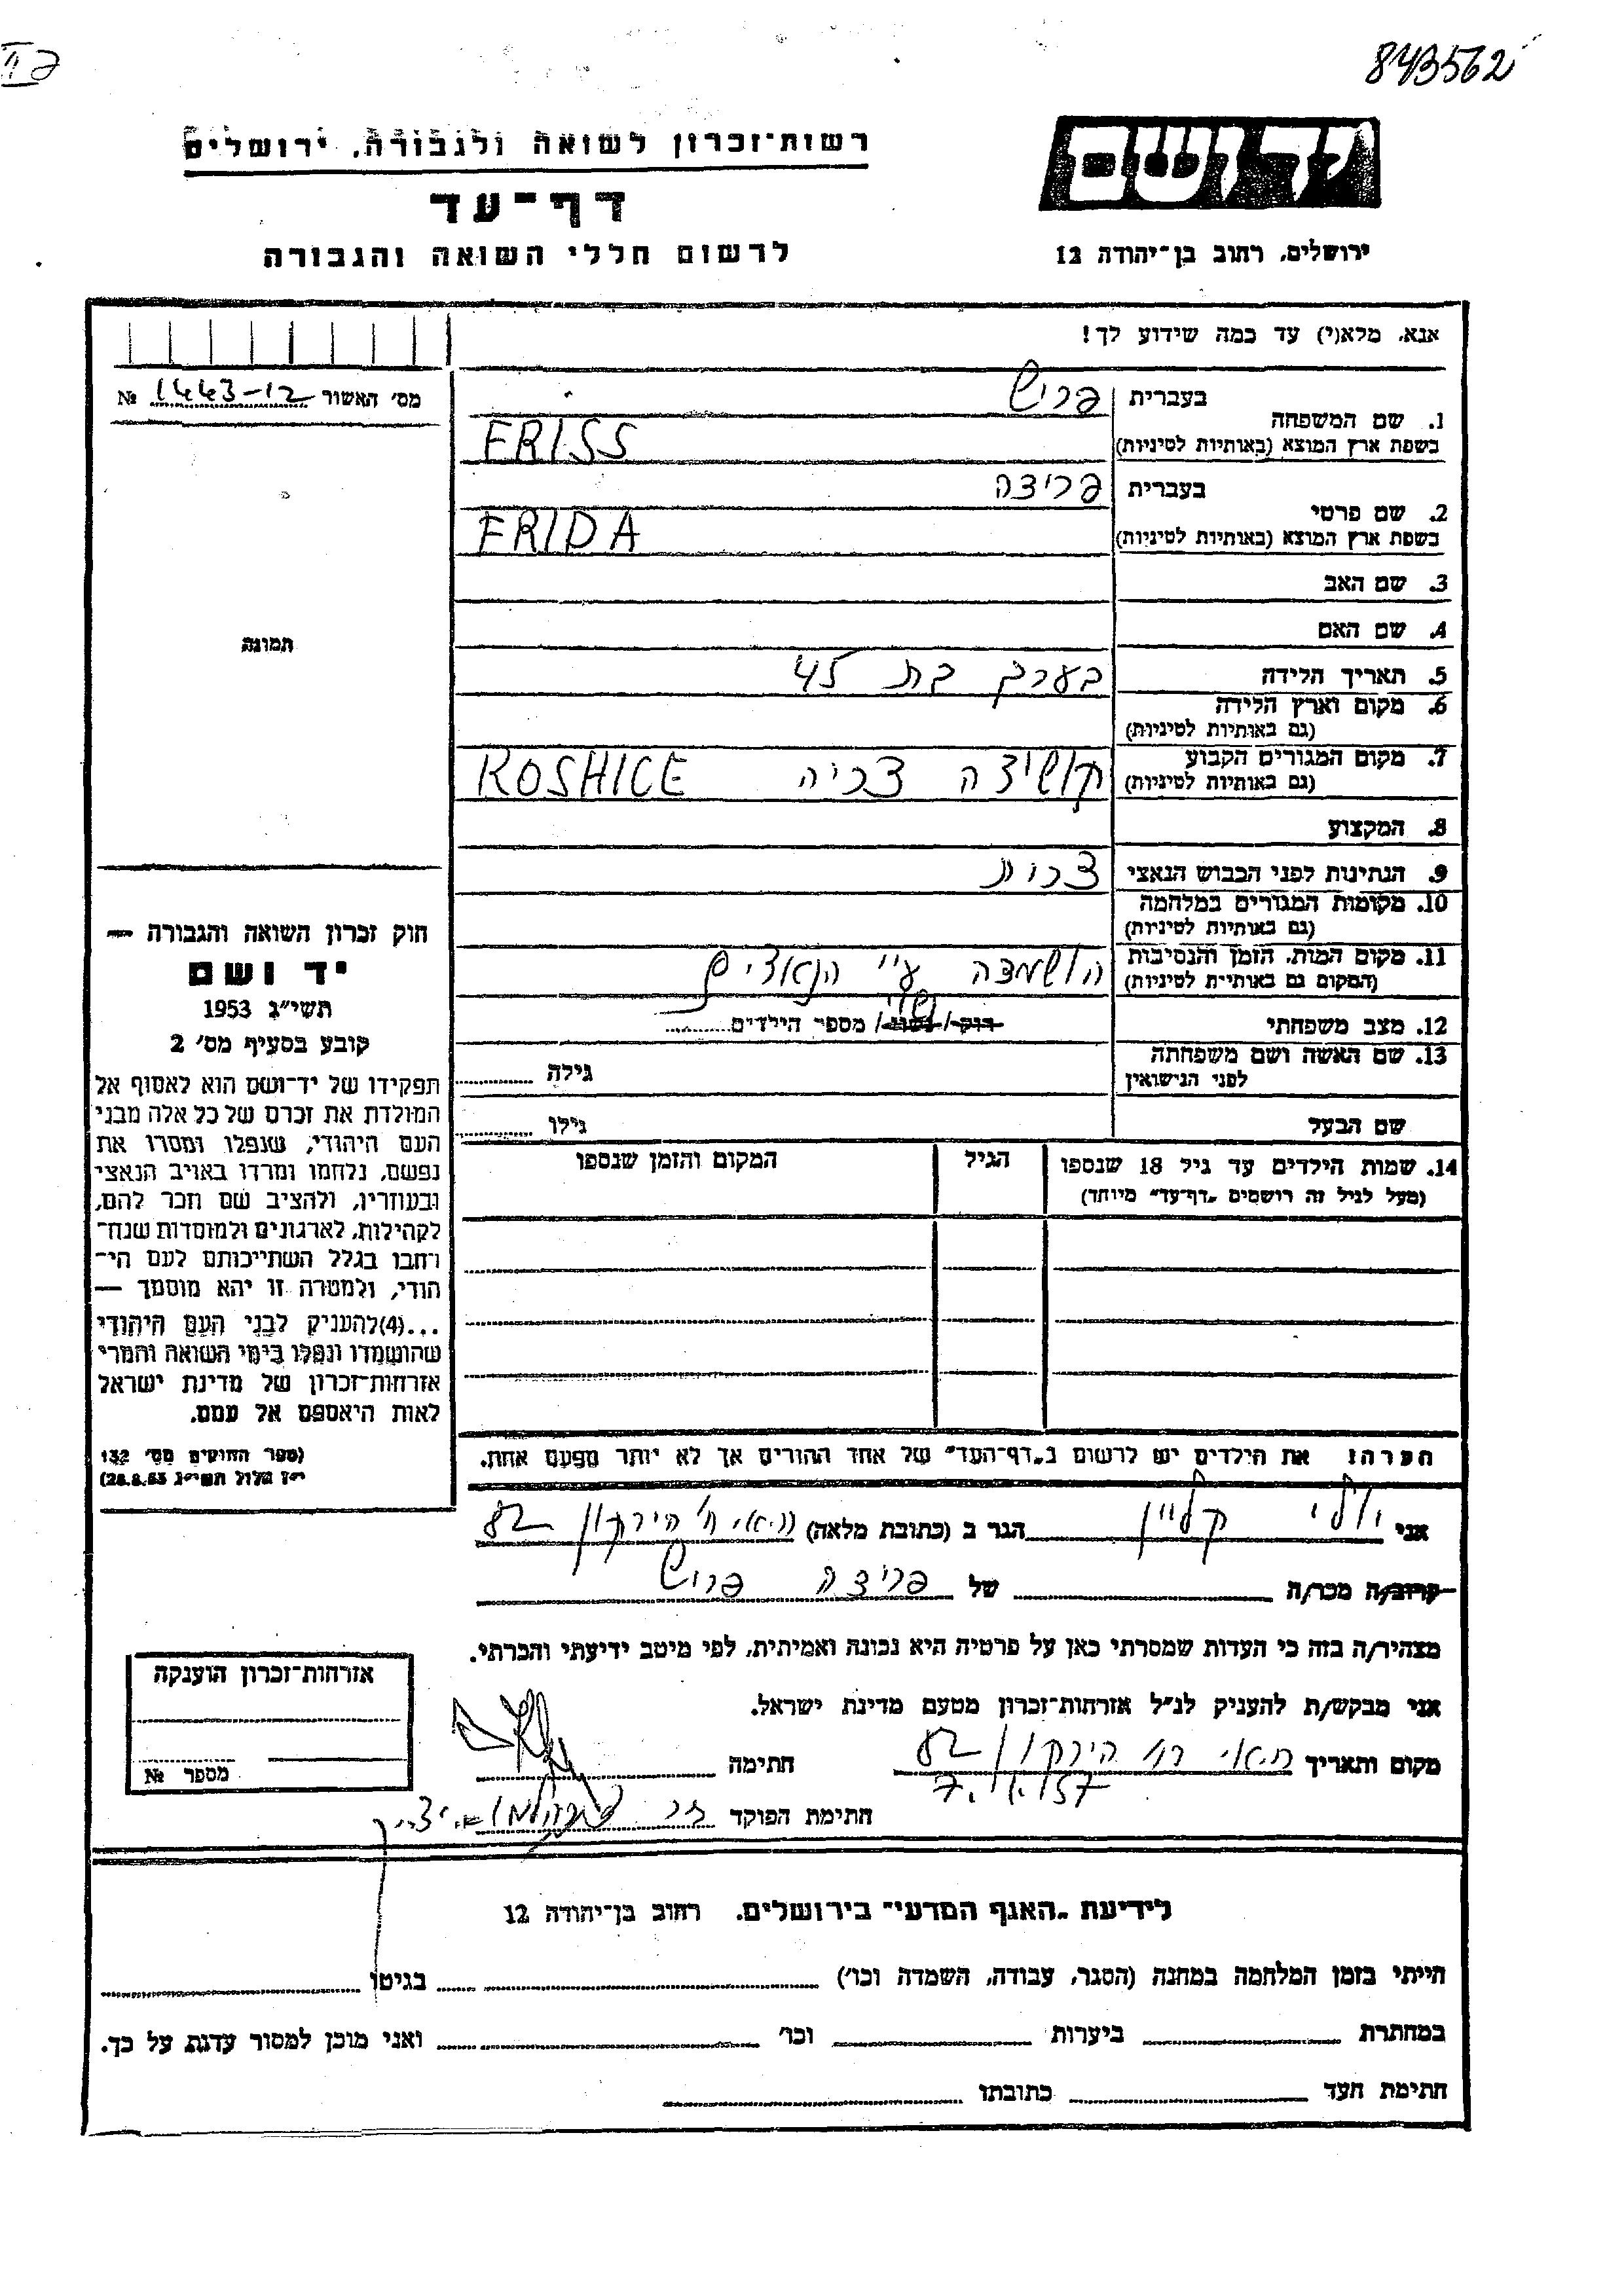 843562
רשות־זכרון לשואה ולגבורה, ירושלים
יד ושם
דף־עד
לרשום חללי השואה והגבורה
ירושלים, רחוב בן־יהודה 12
אנא, מלא(י) עד כמה שידוע לך!
מס' האשור 1443-12 №
1. שם המשפחה בעברית פריש
בשפת ארץ המוצא (באותיות לטיניות) FRISS
2. שם פרטי בעברית פרידה
בשפת ארץ המוצא (באותיות לטיניות) FRIDA
3. שם האב
4. שם האם
5. תאריך הלידה בערך בת 45
6. מקום וארץ הלידה
(גם באותיות לטיניות)
7. מקום המגורים הקבוע
(גם באותיות לטיניות) קושיצה צכיה KOSHICE
8. המקצוע
9. הנתינות לפני הכבוש הנאצי צכית
10. מקומות המגורים במלחמה
(גם באותיות לטיניות)
11. מקום המות, הזמן והנסיבות
(המקום גם באותיות לטיניות) הושמדה ע"י הנאצים
12. מצב משפחתי רוק/נשוי/ מספר הילדים נשוי
13. שם האשה ושם משפחתה
לפני הנישואין גילה
שם הבעל גילו
14. שמות הילדים עד גיל 18 שנספו הגיל המקום והזמן שנספו
(מעל לגיל זה רושמים „דף־עד" מיוחד)
תמונה
חוק זכרון השואה והגבורה —
יד ושם
תשי"ג 1953
קובע בסעיף מס' 2
תפקידו של יד־ושם הוא לאסוף אל
המולדת את זכרם של כל אלה מבני
העם היהודי, שנפלו ומסרו את
נפשם, נלחמו ומרדו באויב הנאצי
ובעוזריו, ולהציב שם וזכר להם,
לקהילות, לארגונים ולמוסדות שנח־
רבו בגלל השתייכותם לעם הי־
הודי, ולמטרה זו יהא מוסמך —
...(4)להעניק לבני העם היהודי
שהושמדו ונפלו בימי השואה והמרי
אזרחות־זכרון של מדינת ישראל
לאות היאספם אל עמם.
(ספר החוקים מס' 132
י"ז אלול תשי"ג 28.8.53)
הערה: את הילדים יש לרשום ב„דף־העד" של אחד ההורים אך לא יותר מפעם אחת.
אני יולי קליין הגר ב (כתובת מלאה) ת"א, רח' הירקון 82
קרוב/ה מכר/ה של פרידה פריש
מצהיר/ה בזה כי העדות שמסרתי כאן על פרטיה היא נכונה ואמיתית, לפי מיטב ידיעתי והכרתי.
אני מבקש/ת להעניק לנ"ל אזרחות־זכרון מטעם מדינת ישראל.
מקום ותאריך ת"א, רח' הירקון 82 חתימה
חתימת הפוקד
אזרחות־זכרון הוענקה
מספר №
לידיעת „האגף המדעי" בירושלים, רחוב בן־יהודה 12
הייתי בזמן המלחמה במחנה (הסגר, עבודה, השמדה וכו') בגיטו
במחתרת ביערות וכו' ואני מוכן למסור עדות על כך.
חתימת העד כתובתו